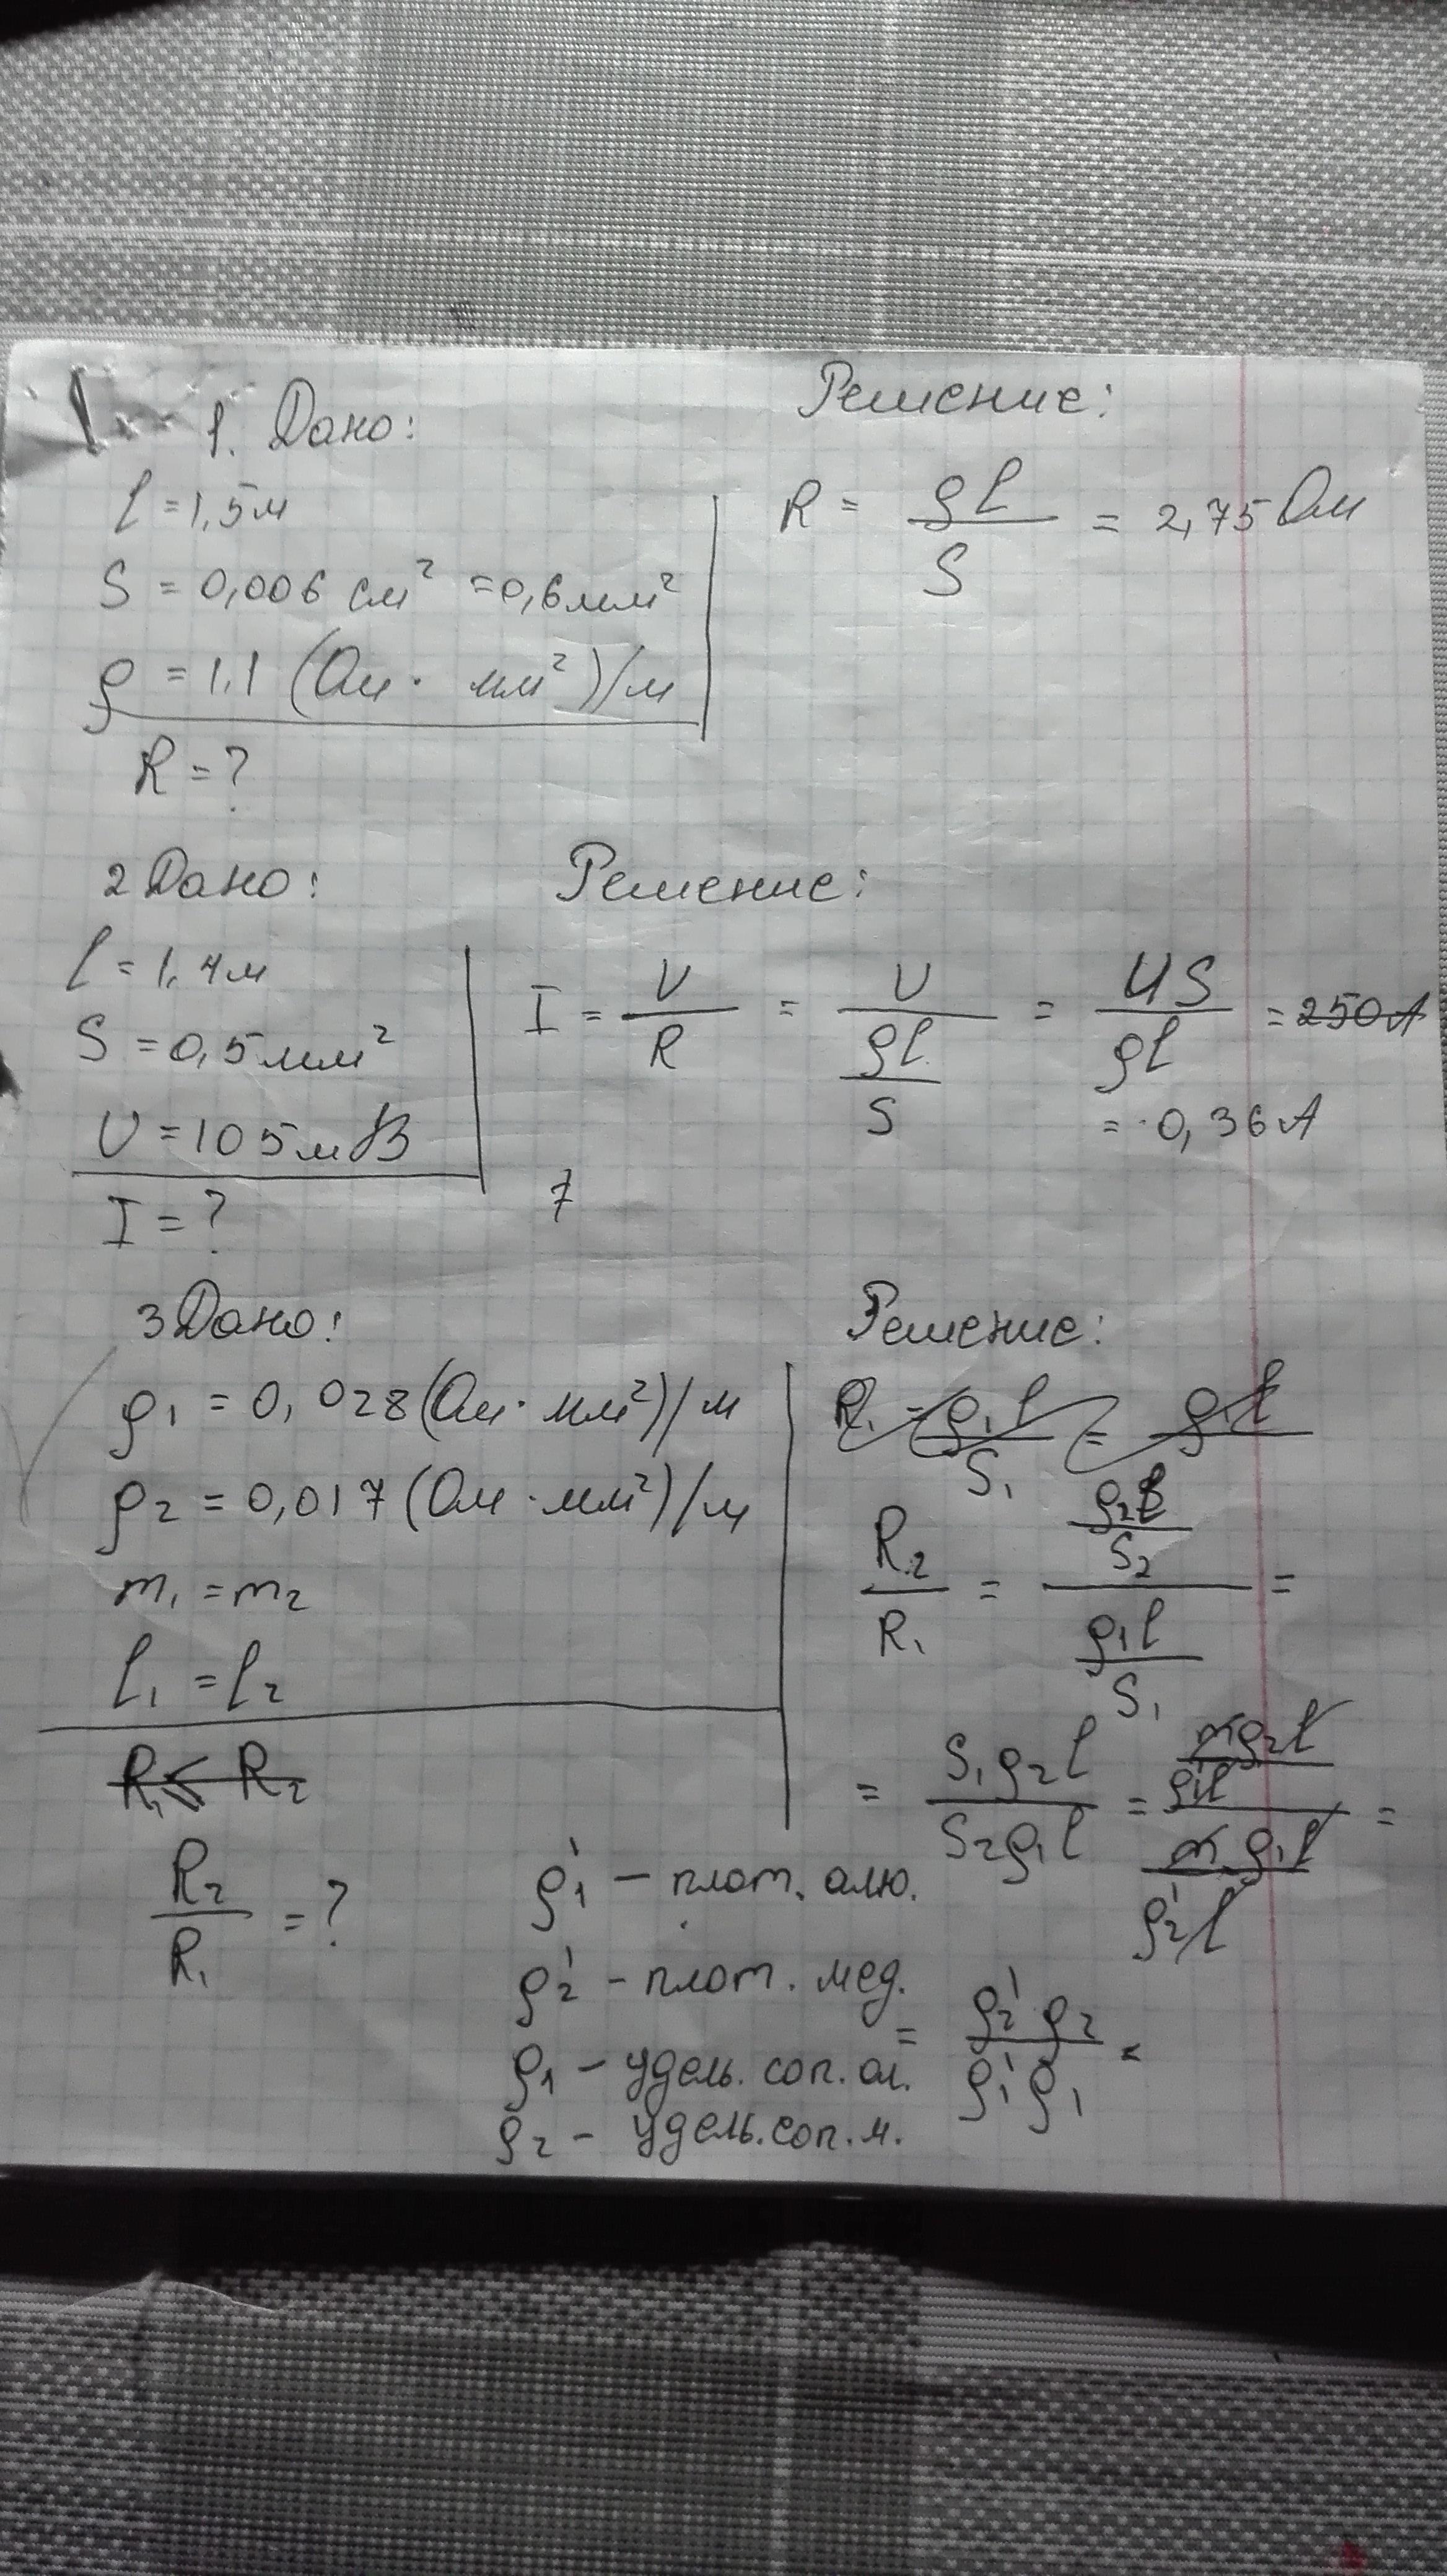 1. Дано:
l = 1,5 м
S = 0,006 см² = 0,6 мм²
ρ = 1,1 (Ом · мм²)/м
R = ?
Решение:
R = ρl / S = 2,75 Ом
2 Дано:
l = 1,4 м
S = 0,5 мм²
U = 105 мВ
I = ?
Решение:
I = U / R = U / (ρl / S) = US / ρl = 250 А
= 0,36 А
7
3 Дано:
ρ1 = 0,028 (Ом · мм²)/м
ρ2 = 0,017 (Ом · мм²)/м
m1 = m2
l1 = l2
R1 < R2
R2 / R1 = ?
Решение:
R1 = ρ1 l / S1 = ρ1 l
R2 / R1 = (ρ2 l / S2) / (ρ1 l / S1) =
= S1 ρ2 l / S2 ρ1 l = (m ρ2 l / ρ1' l) / (m ρ1 l / ρ2' l) =
= ρ2' ρ2 / ρ1' ρ1 =
ρ1' – плот. алю.
ρ2' – плот. мед.
ρ1 – удель. соп. ал.
ρ2 – удель. соп. м.